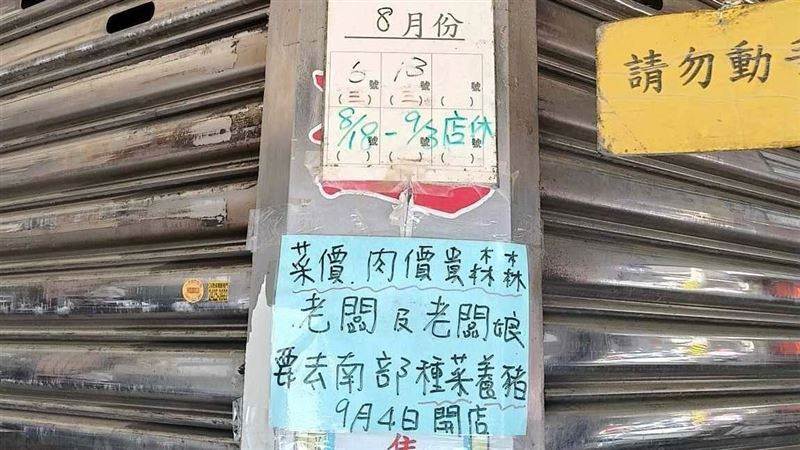 8月份
6號 13號 號
(三) (三) ( )
8/18號-9/3號店休號
( ) ( ) ( )
請勿動手
菜價.肉價貴森森
老闆及老闆娘
要去南部種菜養豬
9月4日開店